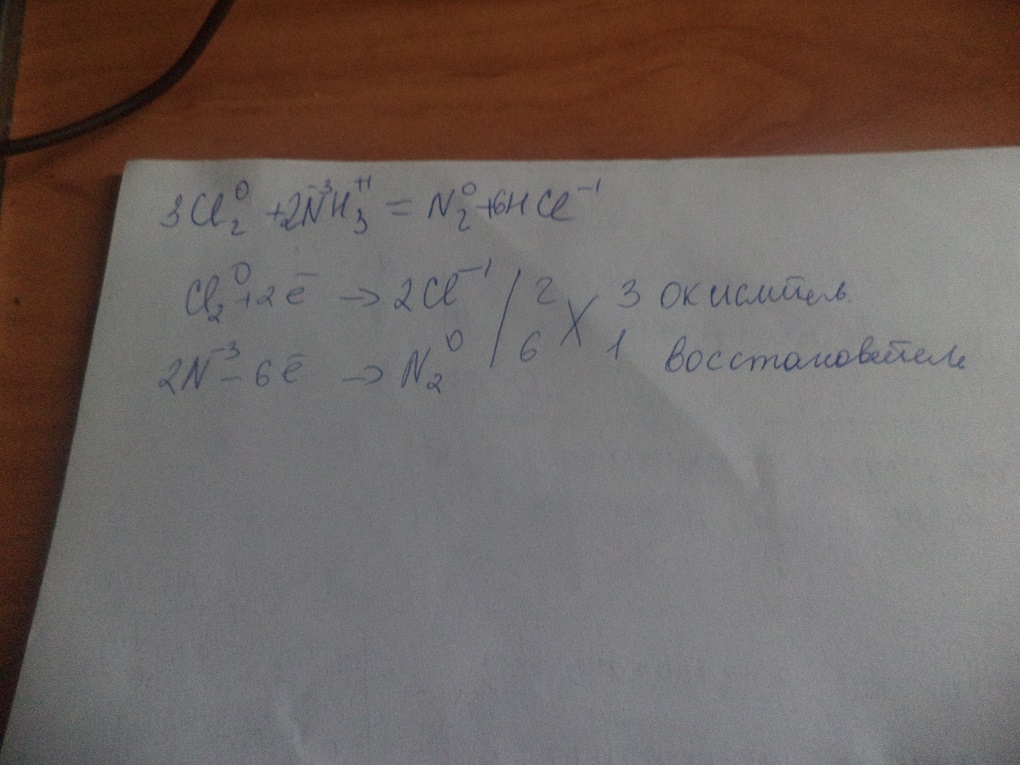 3Cl₂⁰ + 2N⁻³H₃⁺¹ = N₂⁰ + 6HCl⁻¹
Cl₂⁰ + 2ē → 2Cl⁻¹ / 2 X 3 окислитель
2N⁻³ - 6ē → N₂⁰ / 6 1 восстановитель